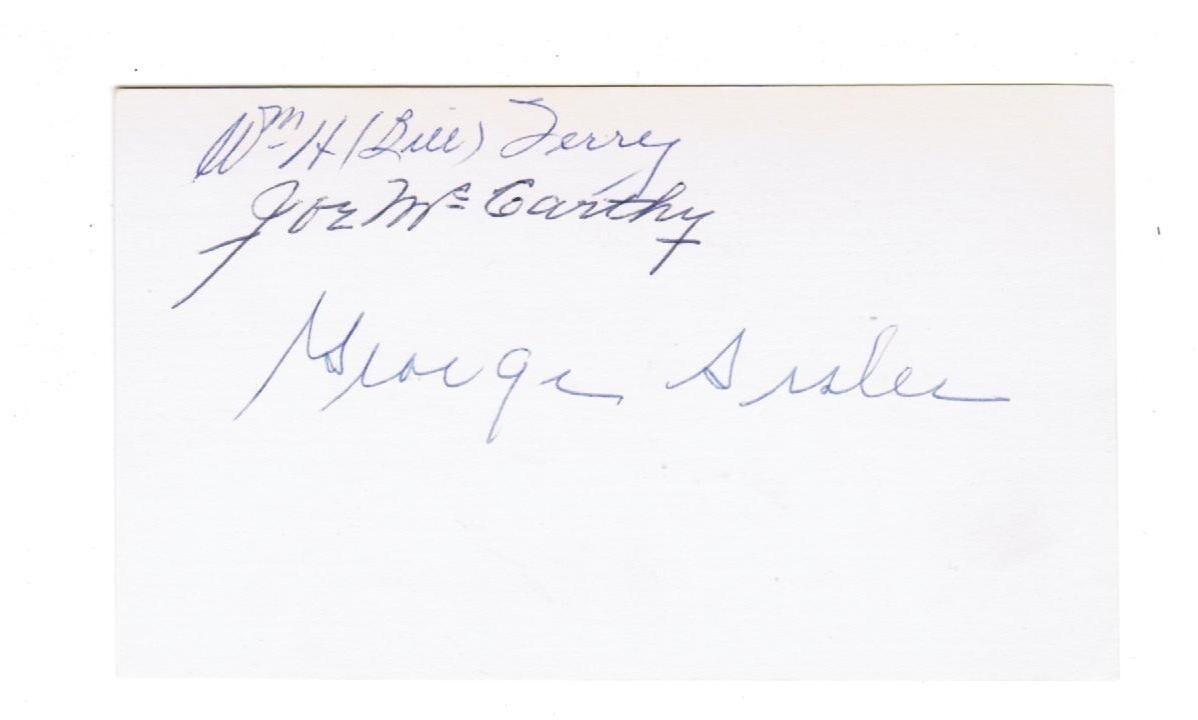 Wm H (Bill) Terry
Joe McCarthy
George Sisler